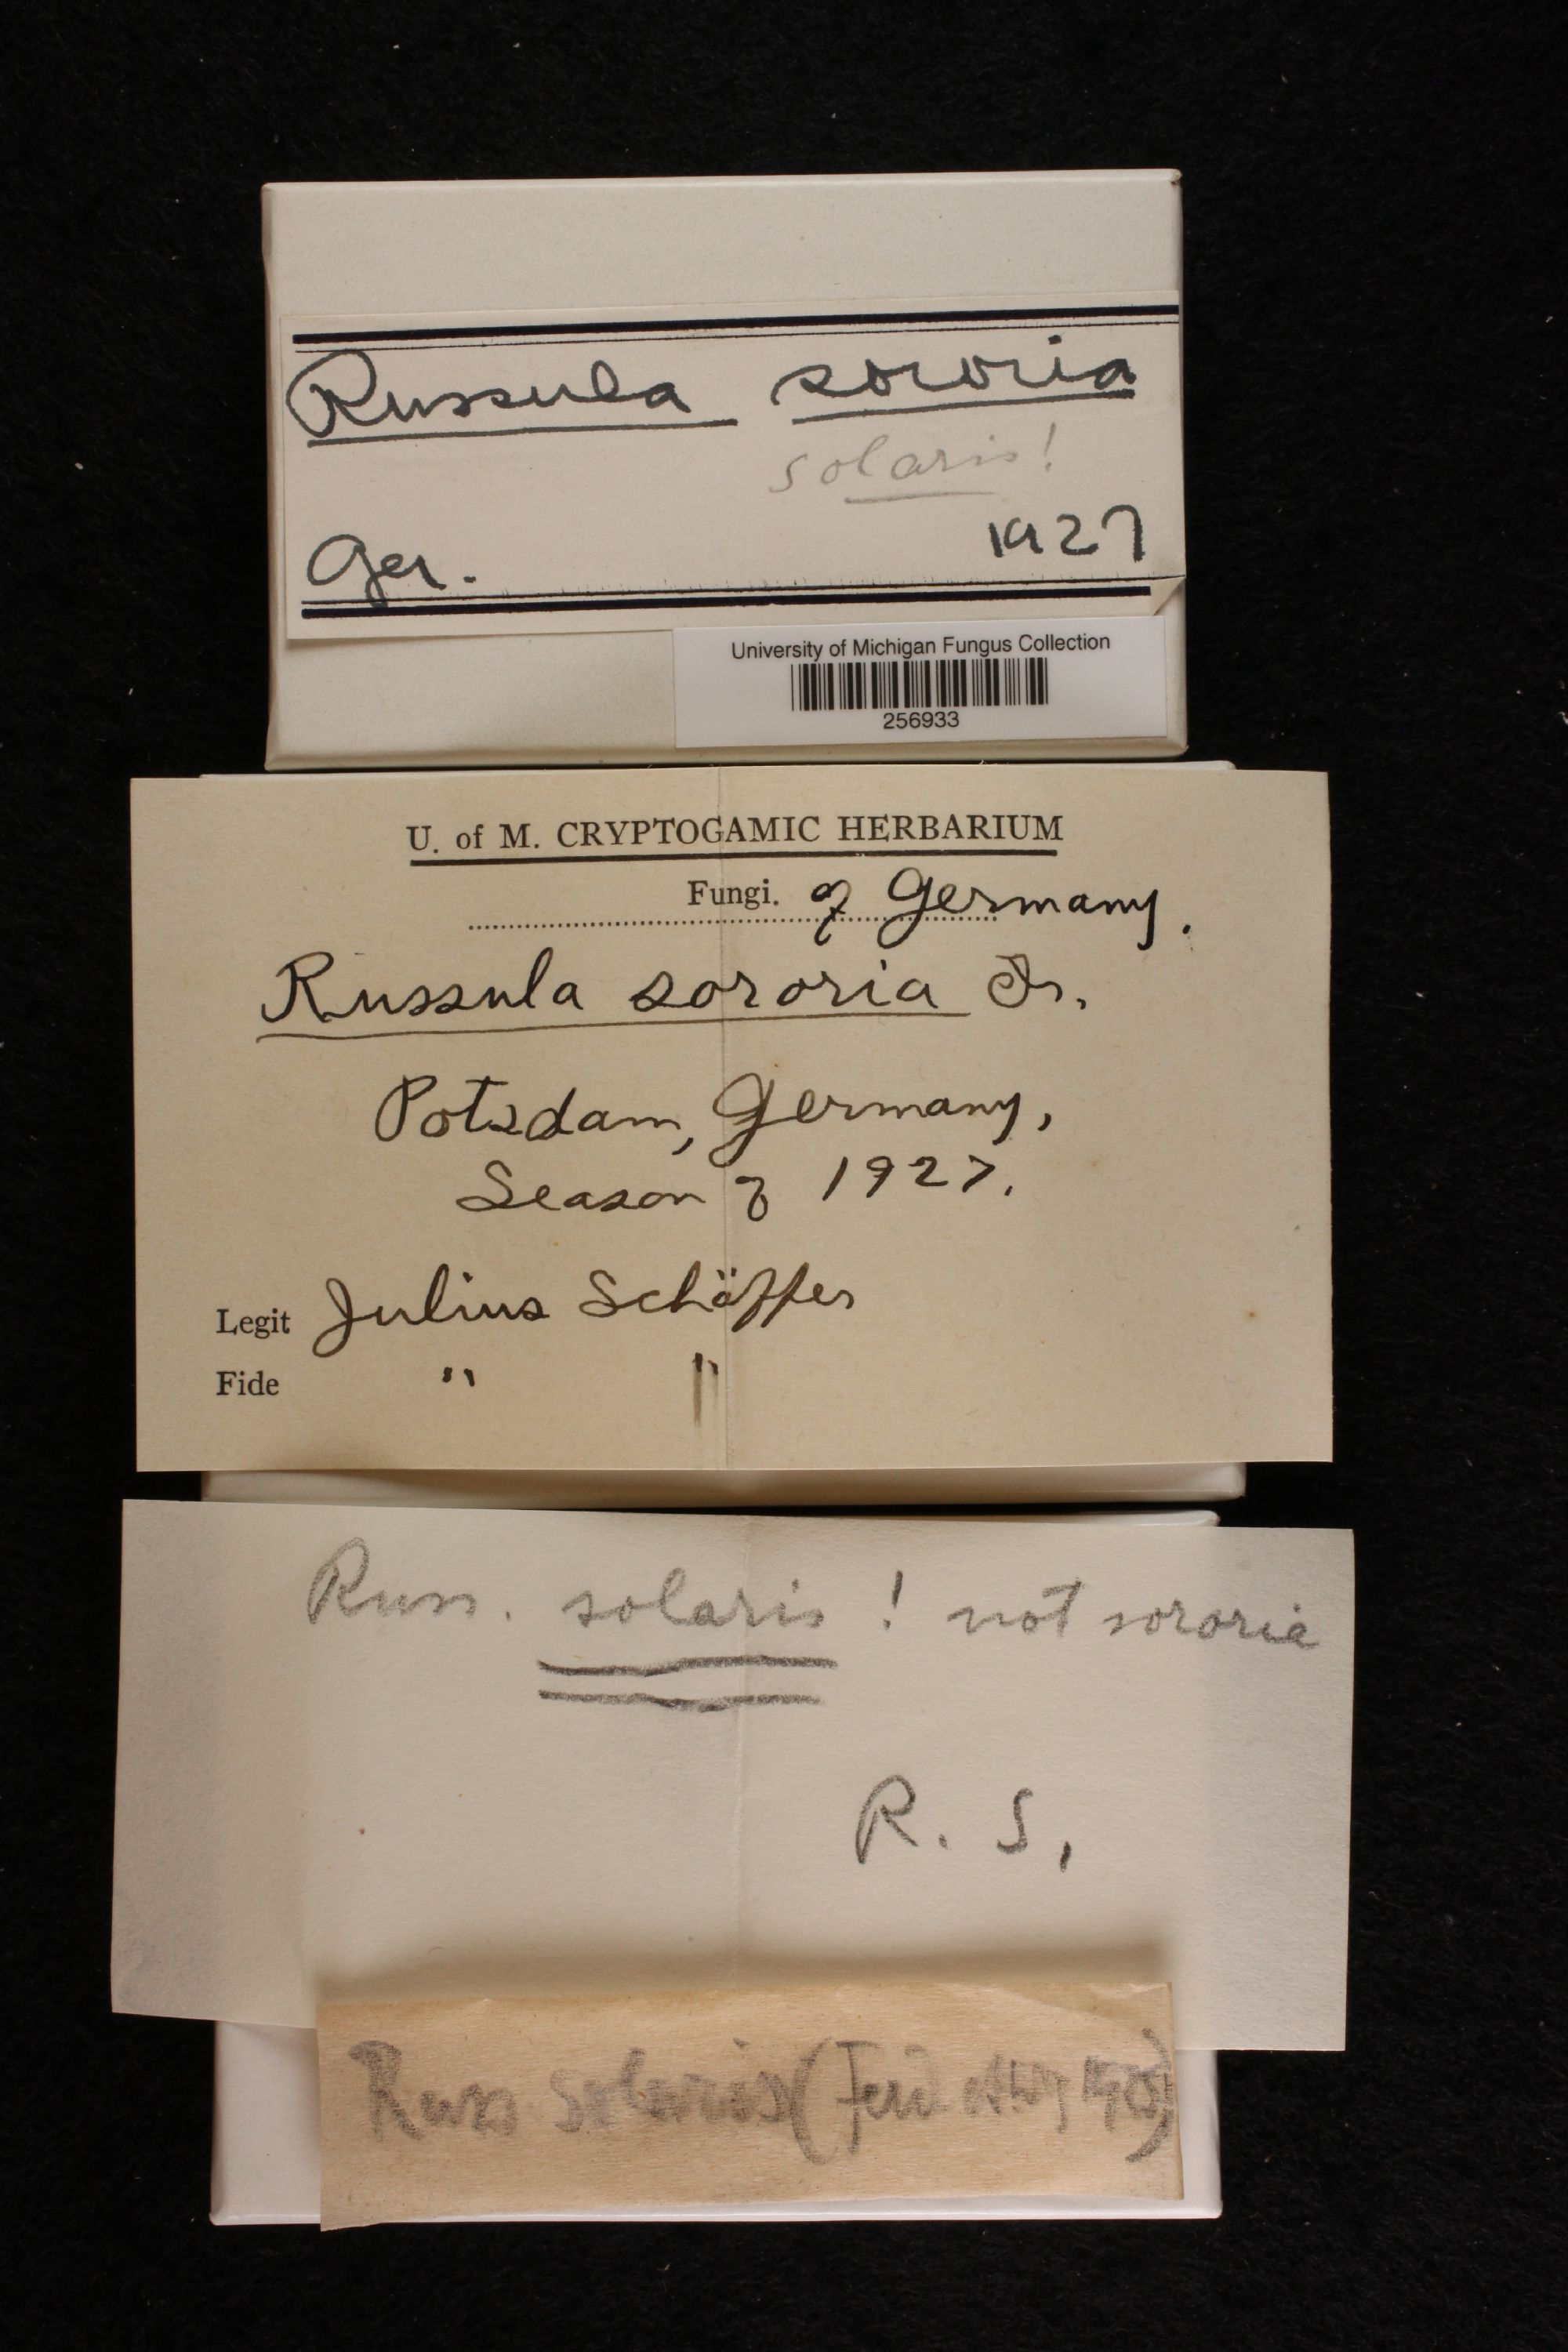 Russula sororia
solaris!
Ger. 1927
University of Michigan Fungus Collection
256933
U. of M. CRYPTOGAMIC HERBARIUM
Fungi. of Germany.
Russula sororia Fr.
Potsdam, Germany,
Season of 1927.
Legit Julius Schäffer
Fide " "
Russ. solaris! not sororia
R. S.
Russ solaris (Ferd